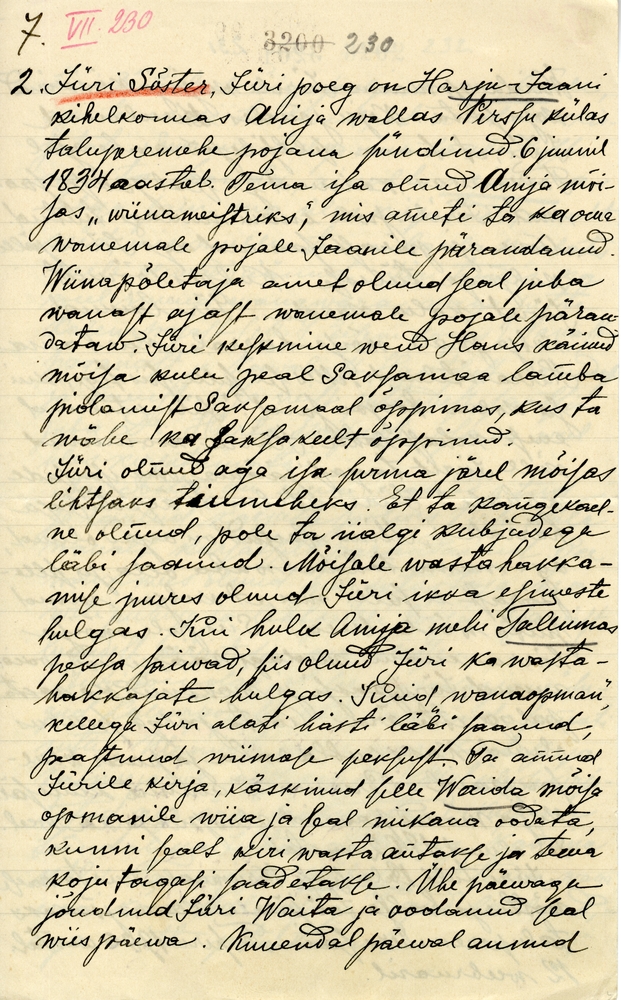 7. VII. 230
3200 230
2. Jüri Söster, Jüri poeg on Harju-Jaani
kihelkonnas Anija wallas Perssu külas
taluperemehe pojana sündinud 6 juunil
1834 aastal. Tema isa olnud Anija mõi-
sas „wiinameistriks“, mis ameti ta ka oma
wanemale pojale Jaanile pärandanud.
Wiinapõletaja amet olnud seal juba
wanast ajast wanemale pojale päran-
dataw. Jüri keskmine wend Hans käinud
mõisa kulu peal Saksamaa lamba
pidamist Saksamaal õppimas, kus ta
wähe ka saksakeelt õppinud.
Jüri olnud aga isa surma järel mõisas
lihtsaks teumeheks. Et ta kangekael-
ne olnud, pole ta iialgi kubjadega
läbi saanud. Mõisale wastahakka-
mise juures olnud Jüri ikka esimeste
hulgas. Kui hulk Anija mehi Tallinnas
peksa saiwad, siis olnud Jüri ka wasta-
hakkajate hulgas. Kuid wanaopman,
kellega Jüri alati hästi läbi saanud,
peastnud wiimase peksust. Ta annud
Jürile kirja, käskinud selle Waida mõisa
opmanile wiia ja seal niikaua oodata,
kunni sealt kiri wasta antakse ja tema
koju tagasi saadetakse. Ühe päewaga
jõudnud Jüri Waita ja oodanud seal
wiis päewa. Kuuendal päewal annud